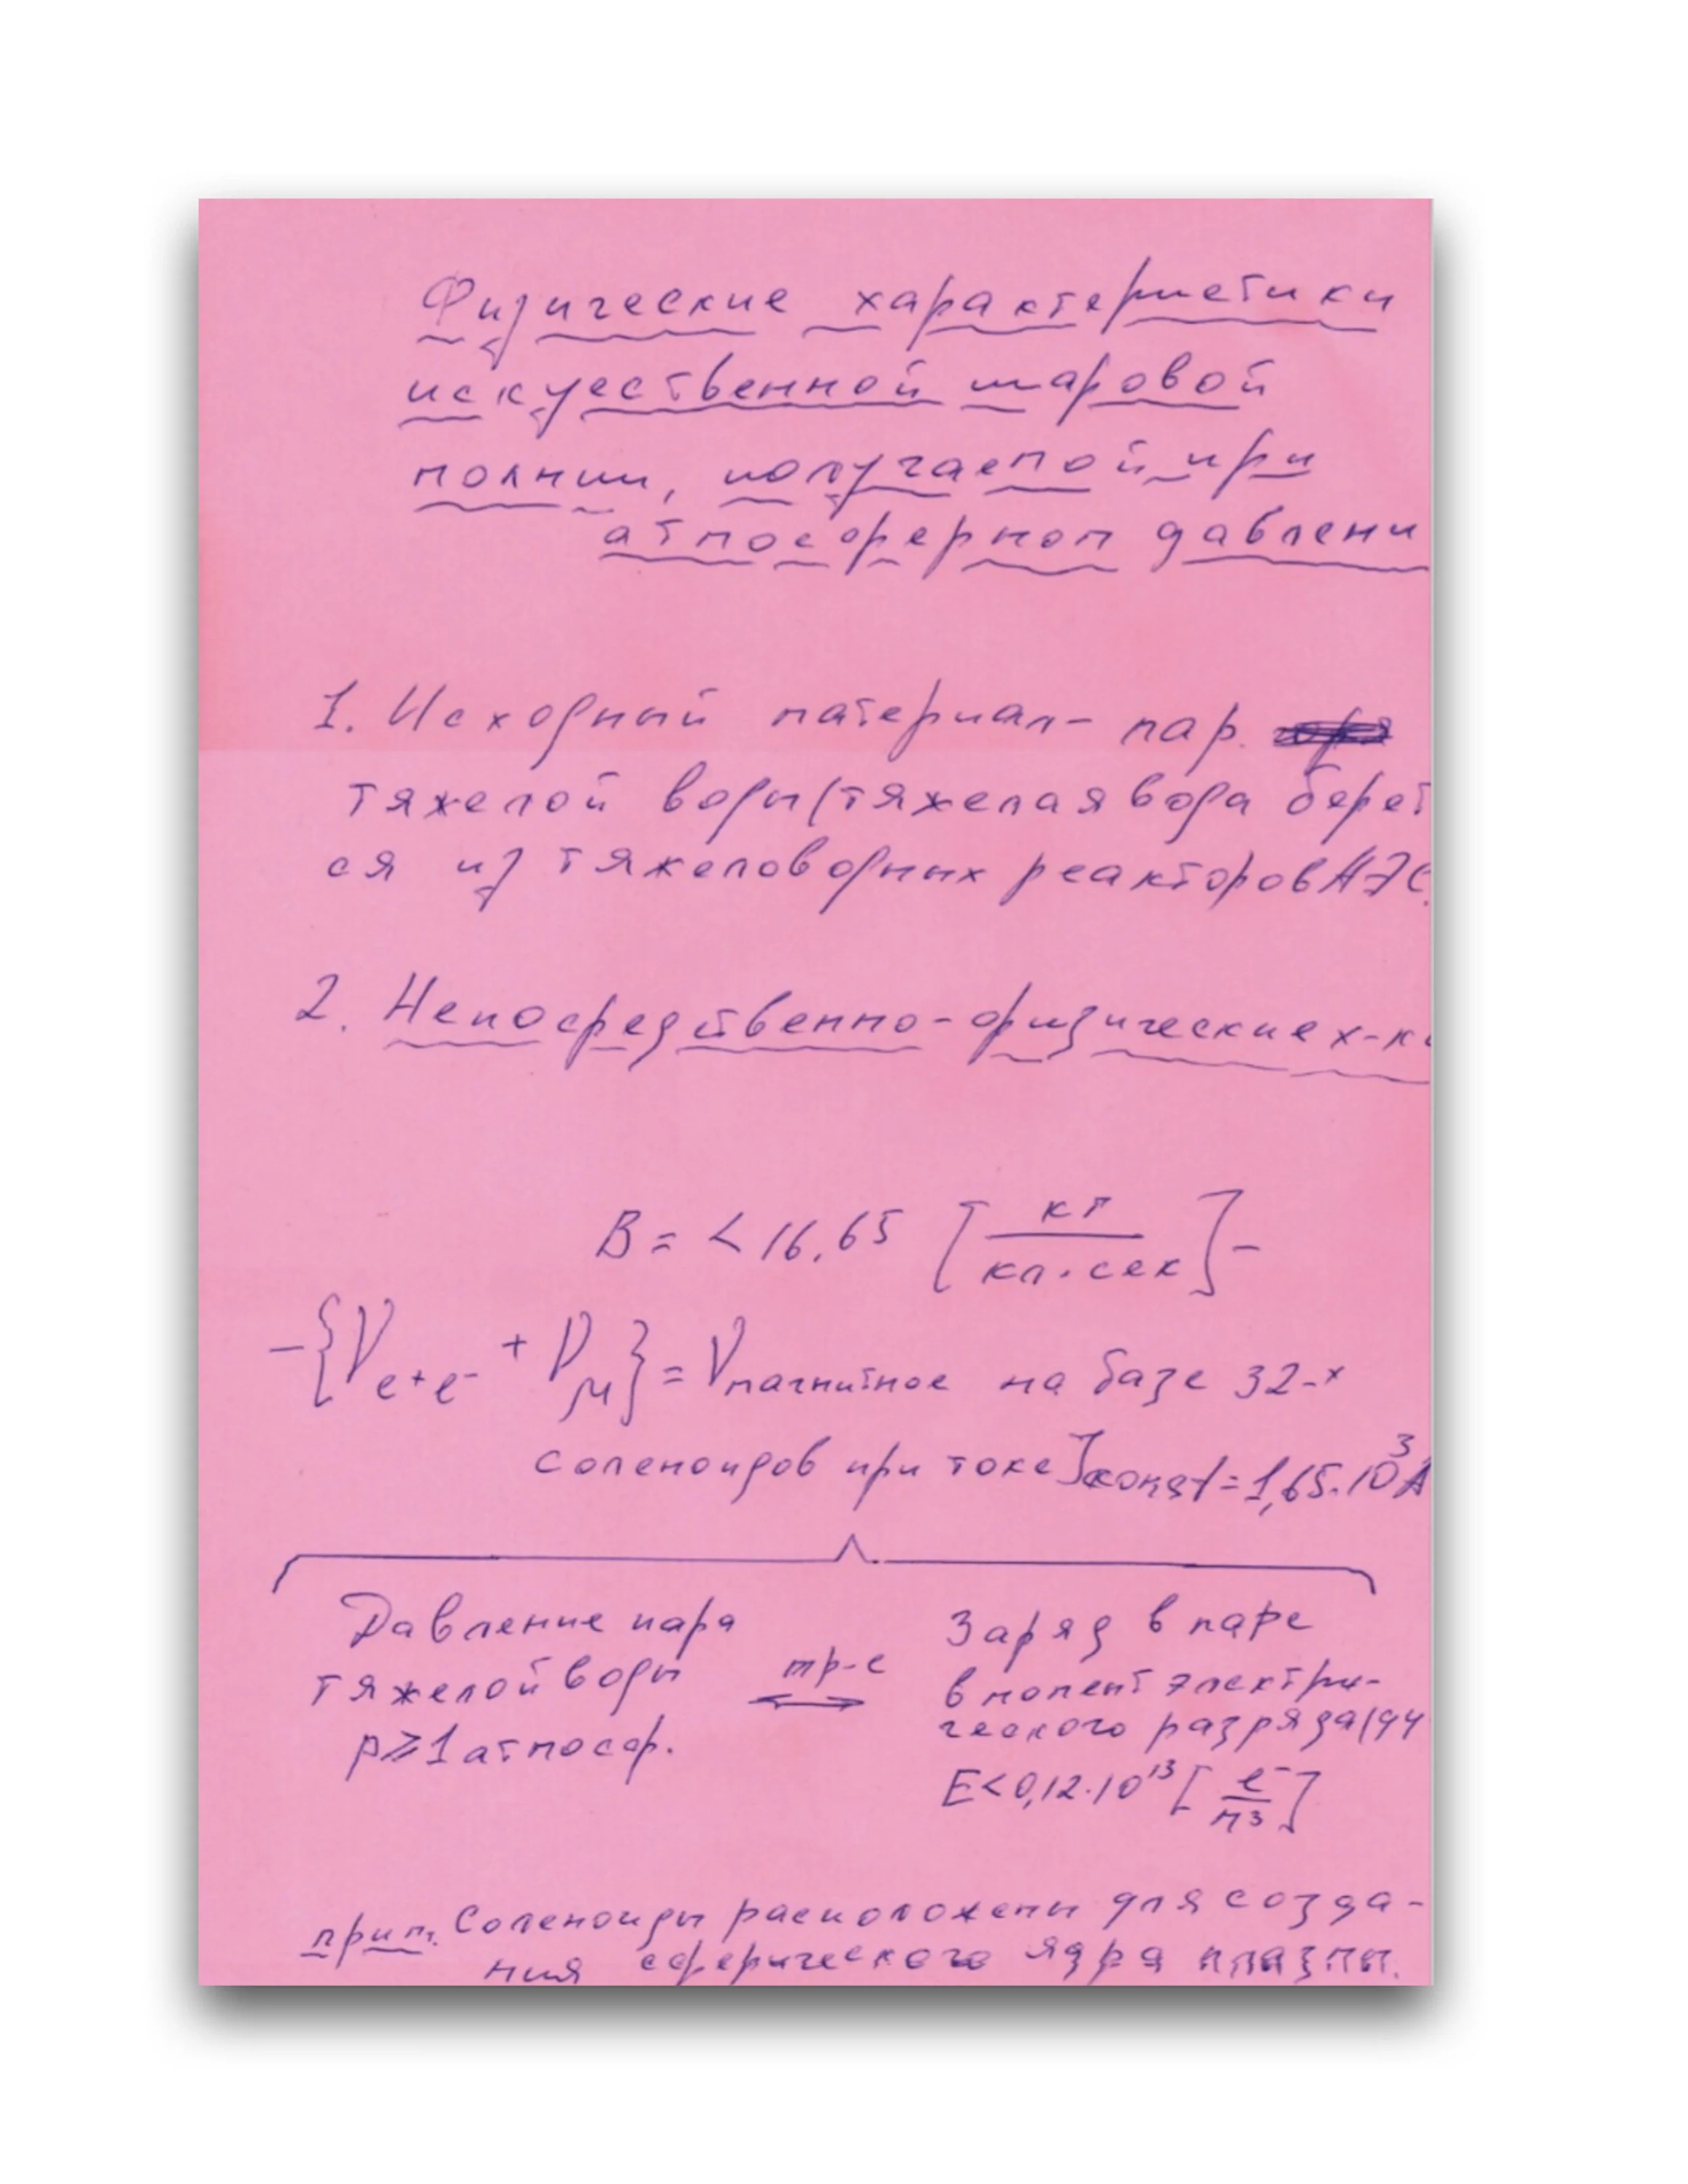 Физические характеристики
искуственной шаровой
молнии, получаемой при
атмосферном давлени
1. Исходный материал - пар
тяжелой воды (тяжелая вода берет
ся из тяжеловодных реакторов АЭС.
2. Непосредственно-физические х-ки
B = < 16,65 [кг/кл·сек] -
- {V e+e- + V μ} = V магнитное на базе 32-х
соленоидов при токе I const = 1,65·10³ А
Давление пара
тяжелой воды
p ≥ 1 атмосф.
тр-е
Заряд в паре
в момент электри-
ческого разряда (
E < 0,12·10¹³ [e⁻/м³]
прим. Соленоиды расположены для созда-
ния сферического ядра плазмы.